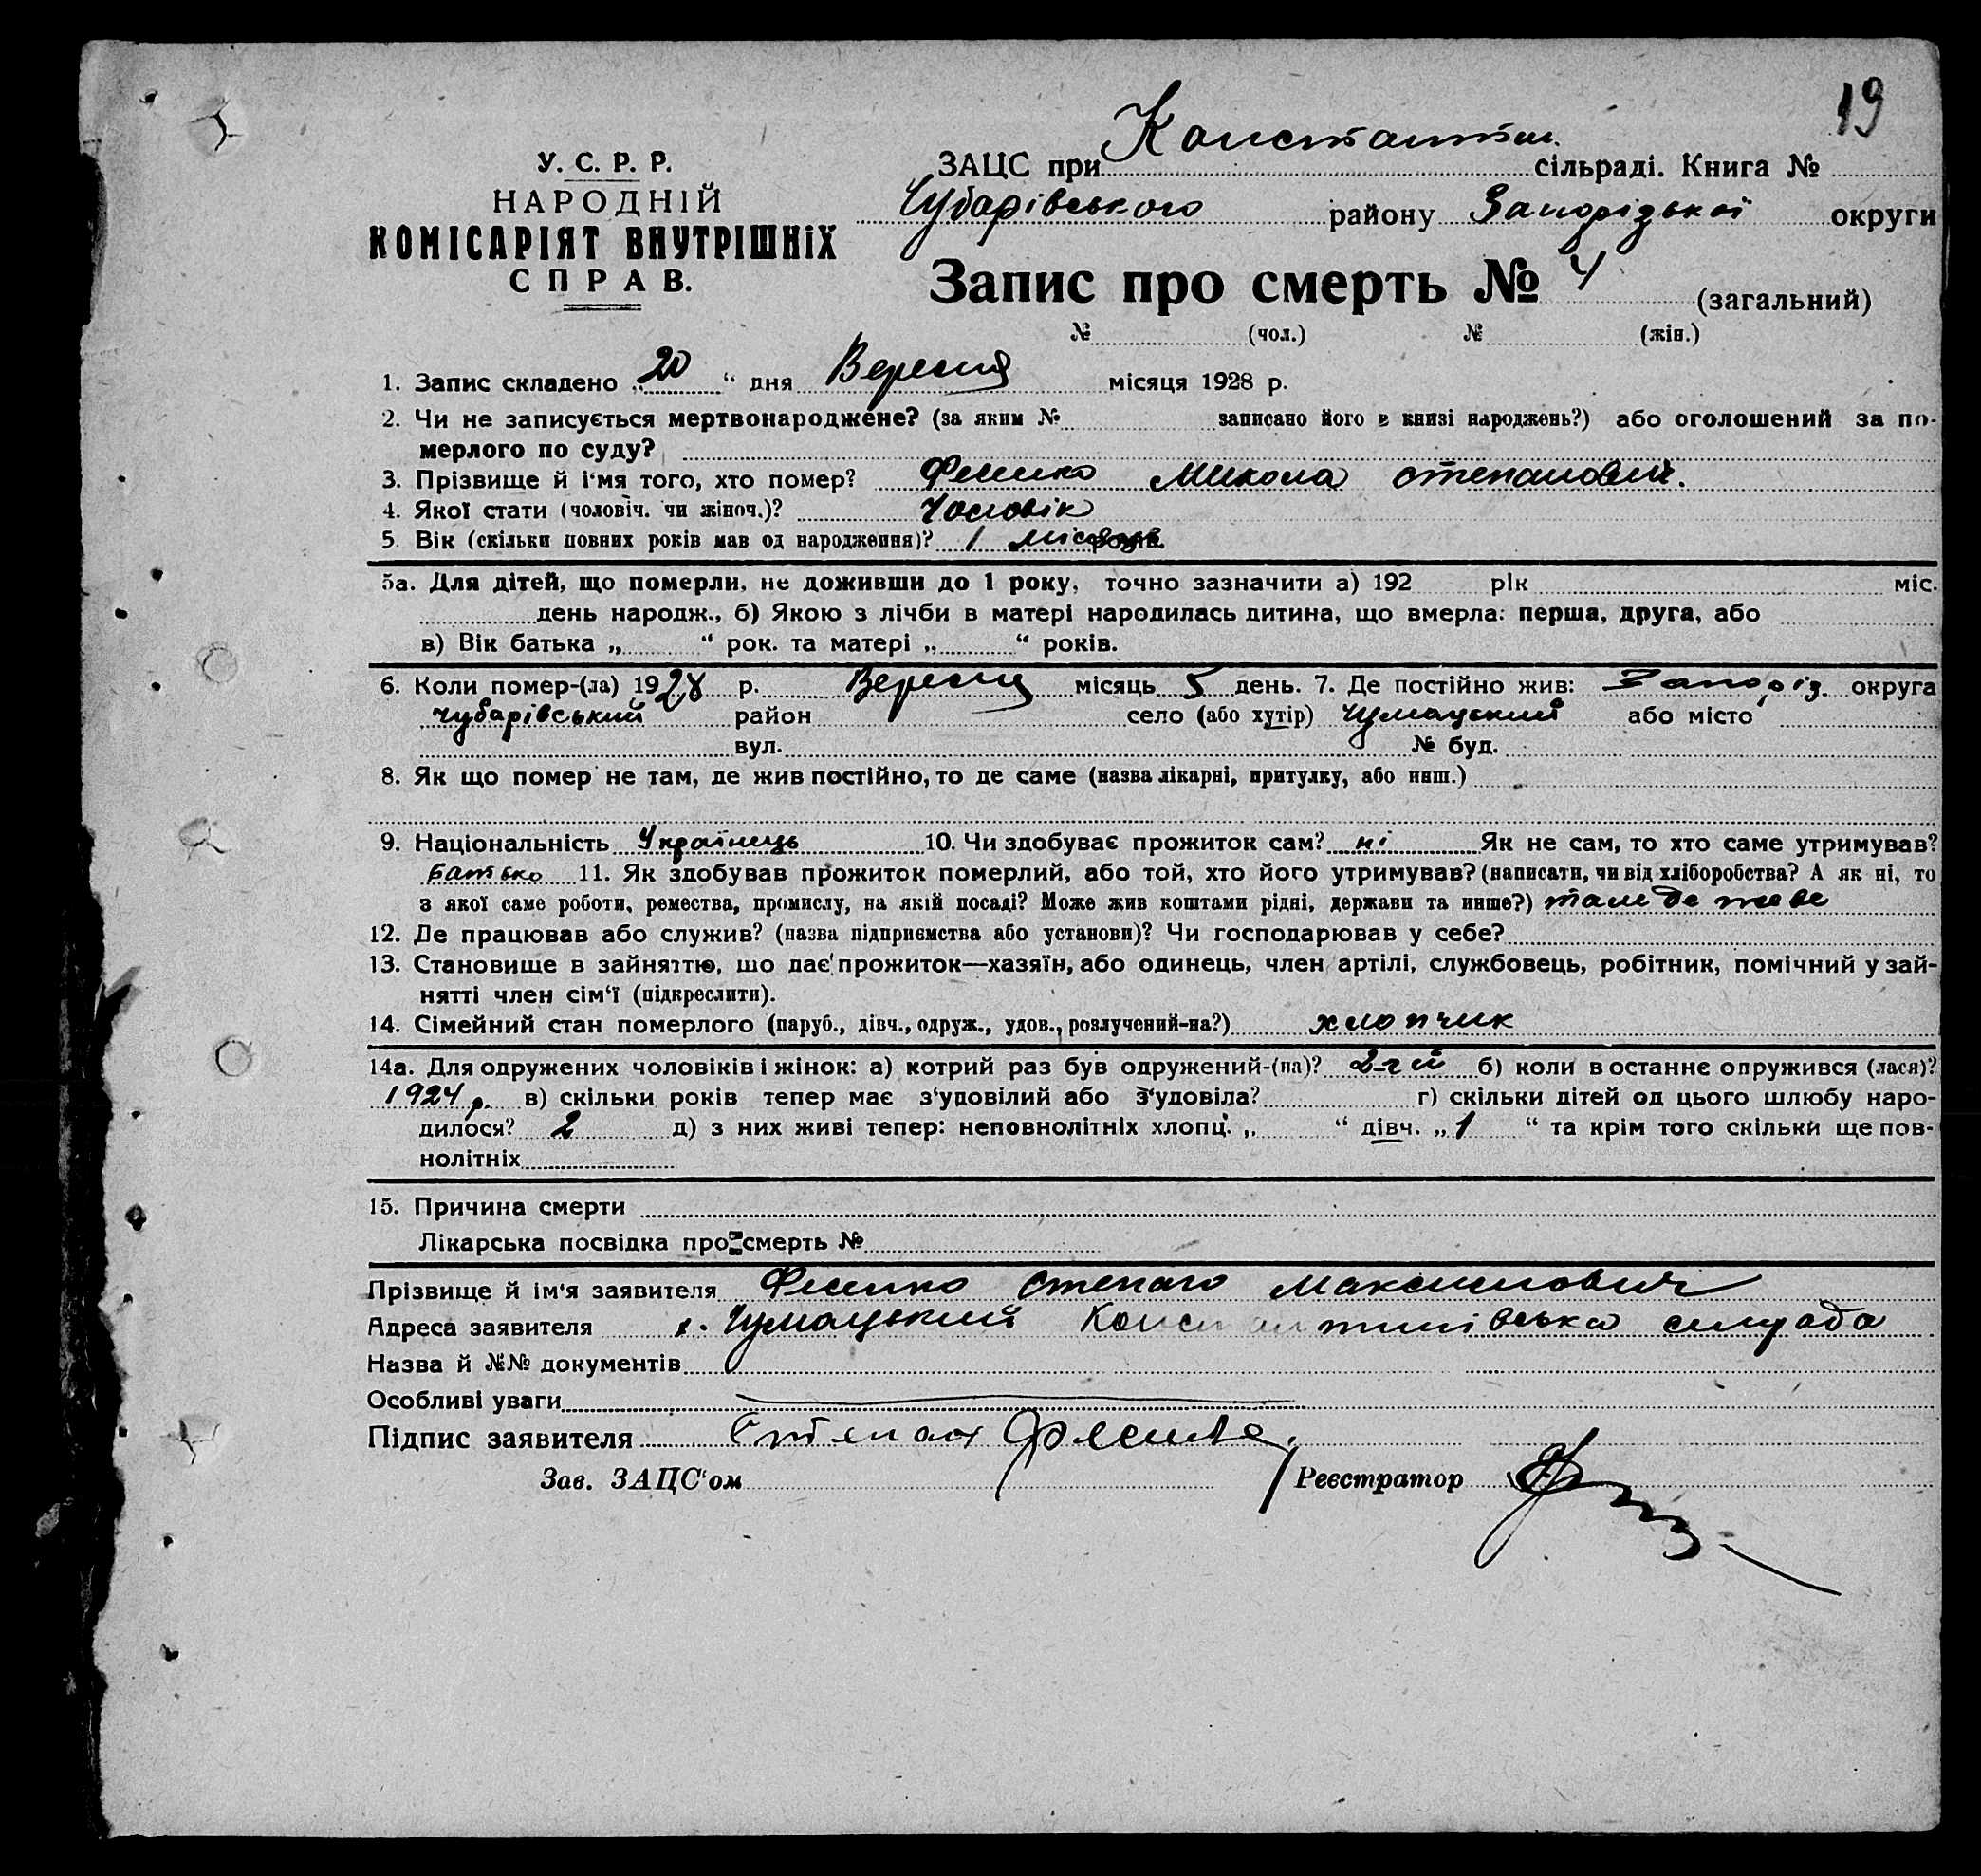 19
У. С. Р. Р.
НАРОДНІЙ
КОМІСАРІЯТ ВНУТРІШНІХ
СПРАВ.
ЗАЦС при Константин. сільраді. Книга №
Чубарівського району Запорізької округи
Запис про смерть № 4 (загальний)
№ (чол.) № (жін.)
1. Запис складено „20“ дня Вересня місяця 1928 р.
2. Чи не записується мертвонароджене? (за яким № записано його в книзі народжень?) або оголошений за по-
мерлого по суду?
3. Прізвище й і'мя того, хто помер? Фесенко Микола Степанович.
4. Якої стати (чоловіч. чи жіноч.)? Чоловік
5. Вік (скільки повних років мав од народження)? 1 місяць
5а. Для дітей, що померли, не доживши до 1 року, точно зазначити а) 192 рік міс.
день народж., б) Якою з лічби в матері народилась дитина, що вмерла: перша, друга, або
в) Вік батька „ “ рок. та матері „ “ років.
6. Коли помер-(ла) 1928 р. Вересня місяць 5 день. 7. Де постійно жив: Запоріз. округа
Чубарівський район село (або хутір) Чумацький або місто
вул. № буд.
8. Як що помер не там, де жив постійно, то де саме (назва лікарні, притулку, або инш.)
9. Національність Українець 10. Чи здобуває прожиток сам? ні Як не сам, то хто саме утримував?
батько 11. Як здобував прожиток померлий, або той, хто його утримував? (написати, чи від хліборобства? А як ні, то
з якої саме роботи, ремества, промислу, на якій посаді? Може жив коштами рідні, держави та инше?) там де живе
12. Де працював або служив? (назва підприємства або установи)? Чи господарював у себе?
13. Становище в зайняттю, що дає прожиток—хазяїн, або одинець, член артілі, службовець, робітник, помічний у зай-
нятті член сім'ї (підкреслити).
14. Сімейний стан померлого (паруб., дівч., одруж., удов., розлучений-на?) хлопчик
14а. Для одружених чоловіків і жінок: а) котрий раз був одружений-(на)? 2-гй б) коли востаннє одружився (лася)?
1924 р. в) скільки років тепер має з'удовілий або з'удовіла? г) скільки дітей од цього шлюбу наро-
дилося? 2 д) з них живі тепер: неповнолітніх хлопц. „ “ дівч. „1“ та крім того скільки ще пов-
нолітніх
15. Причина смерти
Лікарська посвідка про смерть №
Прізвище й ім'я заявителя Фесенко Степан Максимович
Адреса заявителя х. Чумацький Константинівська сільрада
Назва й №№ документів
Особливі уваги
Підпис заявителя Степан Фесенко
Зав. ЗАЦС'ом Реєстратор